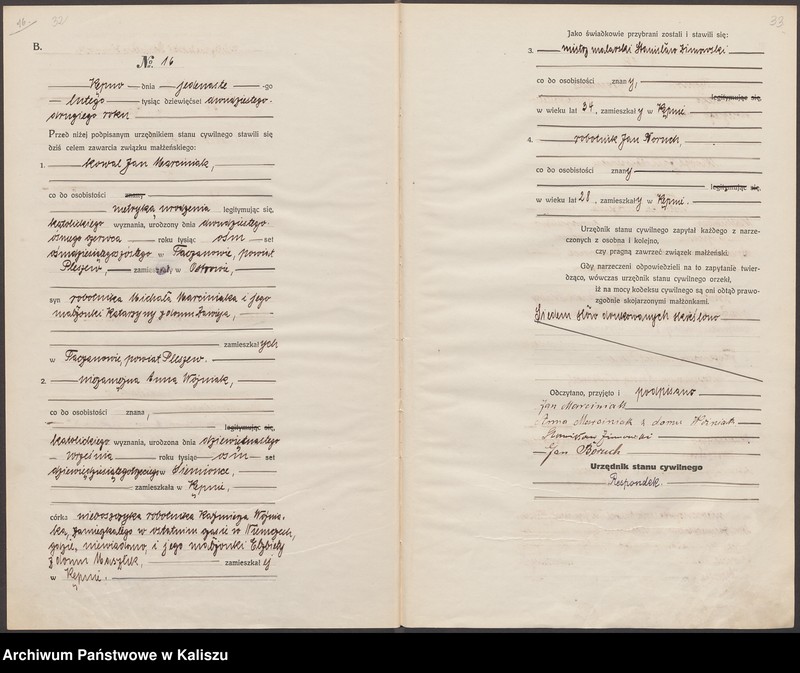 16.
32
B.
№ 16
Kępno dnia jedenaste -go
lutego tysiąc dziewięćset dwudziestego
drugiego roku
Przed niżej podpisanym urzędnikiem stanu cywilnego stawili się
dziś celem zawarcia związku małżeńskiego:
1. kowal Jan Marciniak,
co do osobistości znany
metryką urodzenia legitymując się,
katolickiego wyznania, urodzony dnia dwudziestego
ósmego czerwca roku tysiąc ośm set
w Taczanowie, powiat
Pleszew, zamieszkał w Ostrowie,
syn robotnika Michała Marciniaka i jego
małżonki Katarzyny z domu
zamieszkałych
w Taczanowie, powiat Pleszew.
2. niezamężna Anna Woźniak,
co do osobistości znana,
legitymując się,
katolickiego wyznania, urodzona dnia dziewiętnastego
września roku tysiąc ośm set
dziewięćdziesiątego trzeciego w Siemionce,
zamieszkała w Kępnie,
córka nieboszczyka robotnika Kaźmierza Woźnia-
ka, zamieszkałego w ostatnim czasie w Niemczech,
gdzie, niewiadomo, i jego małżonki Elżbiety
z domu zamieszkałej
w Kępnie.
33
Jako świadkowie przybrani zostali i stawili się:
3. mistrz malarski Stanisław Zimowski
co do osobistości znany,
legitymując się,
w wieku lat 34, zamieszkały w Kępnie.
4. robotnik Jan Noruch,
co do osobistości znany
legitymując się,
w wieku lat 28, zamieszkały w Kępnie.
Urzędnik stanu cywilnego zapytał każdego z narze-
czonych z osobna i kolejno,
czy pragną zawrzeć związek małżeński.
Gdy narzeczeni odpowiedzieli na to zapytanie twier-
dząco, wówczas urzędnik stanu cywilnego orzekł,
iż na mocy kodeksu cywilnego są oni odtąd prawo-
zgodnie skojarzonymi małżonkami.
Siedem słów drukowanych skreślono
Odczytano, przyjęto i podpisano
Jan Marciniak
Anna Marciniak z domu Woźniak
Stanisław Zimowski
Jan Noruch
Urzędnik stanu cywilnego
Respondek.
Archiwum Państwowe w Kaliszu